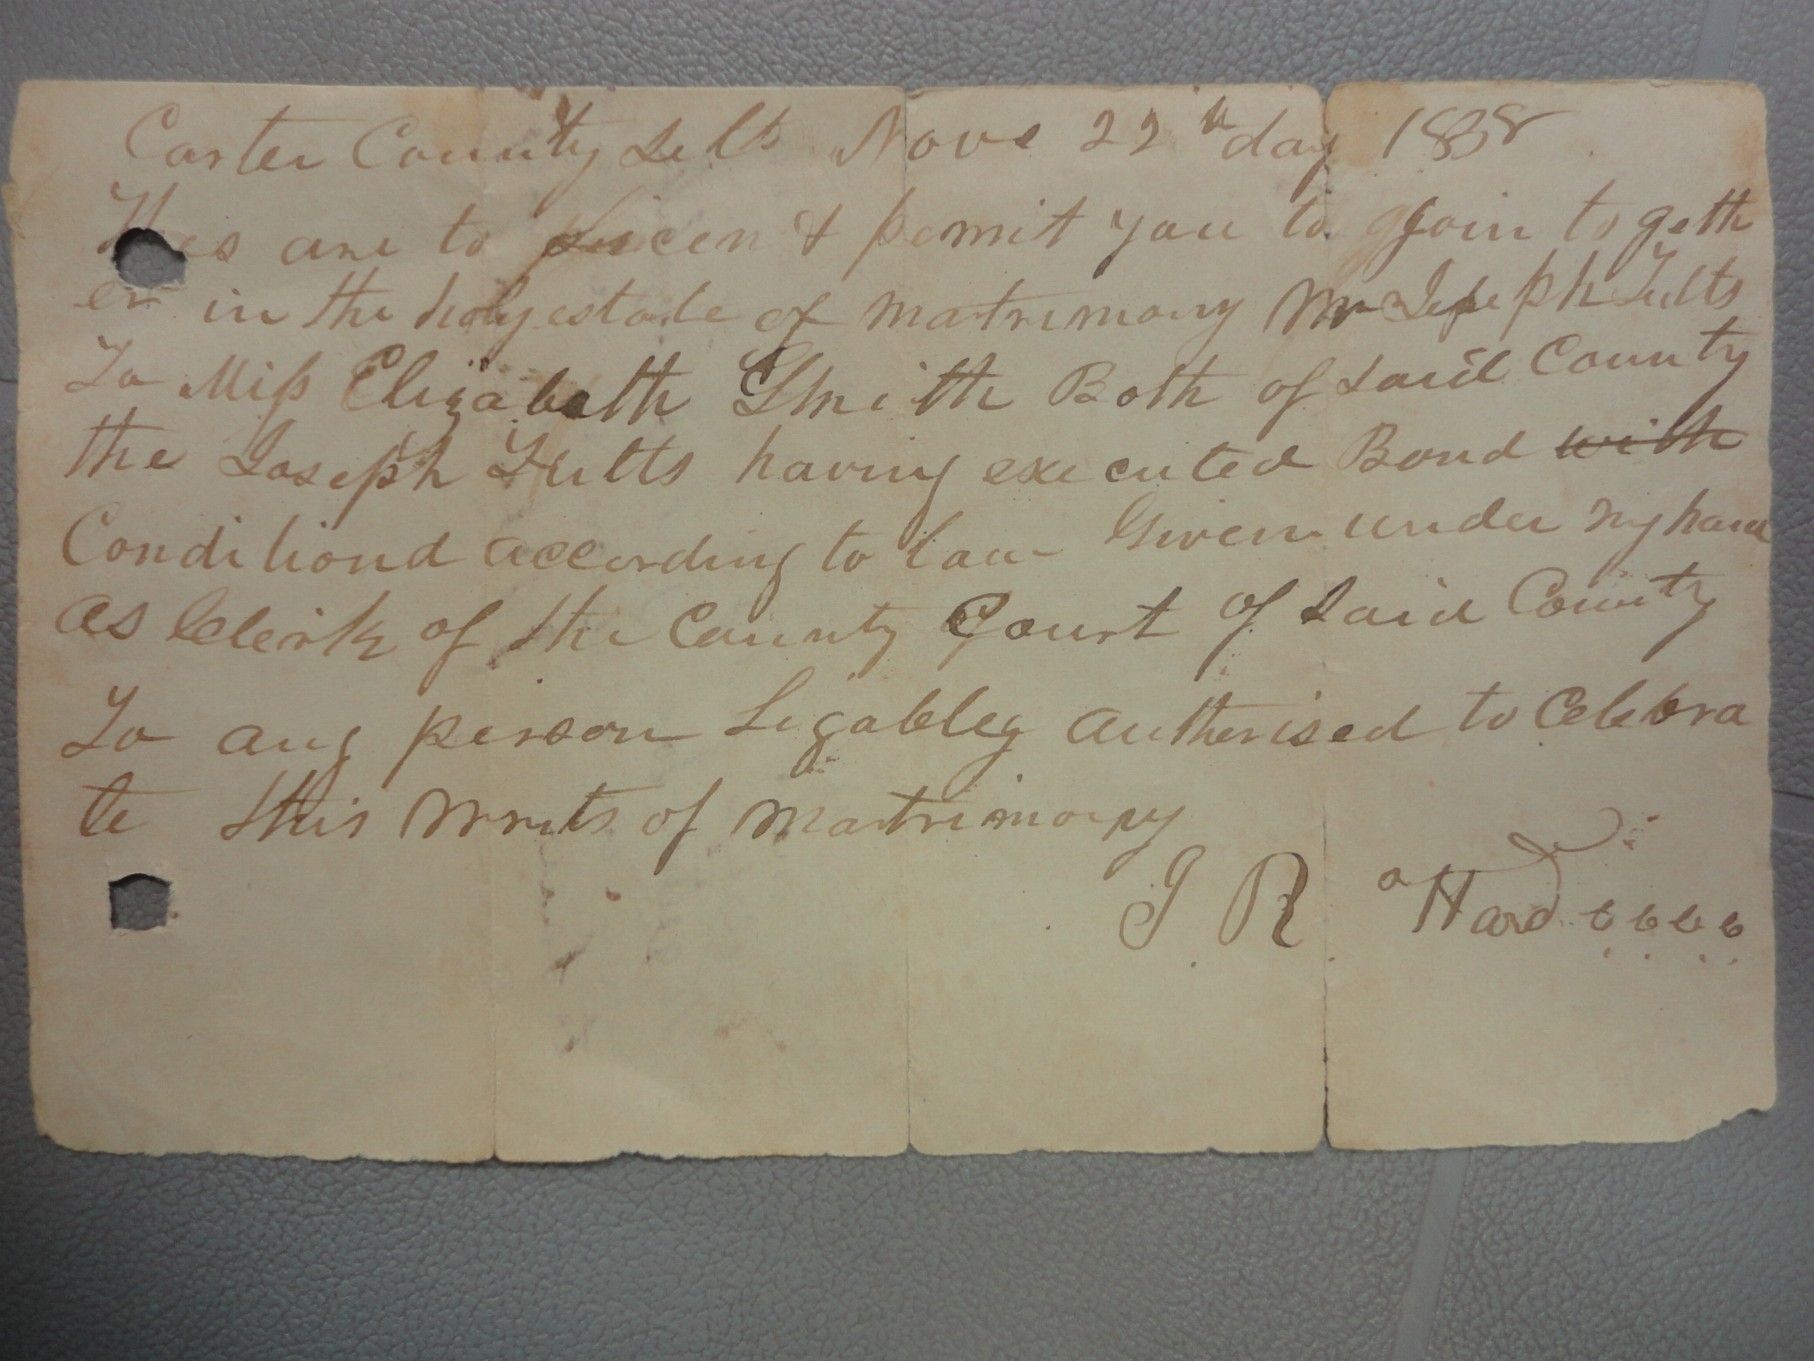 Carter County Novr 22th day 1838
are to licen & permit you to join togeth
er in the holy estate of matrimony Mr Joseph Fults
To Miss Elizabeth Smith Both of said County
the Joseph Fults having executed Bond with
Conditiond according to law Given under my hand
as Clerk of the County Court of said County
To any person Ligabley autherised to Celebra
te this Wrrits of matrimony
J R Hard